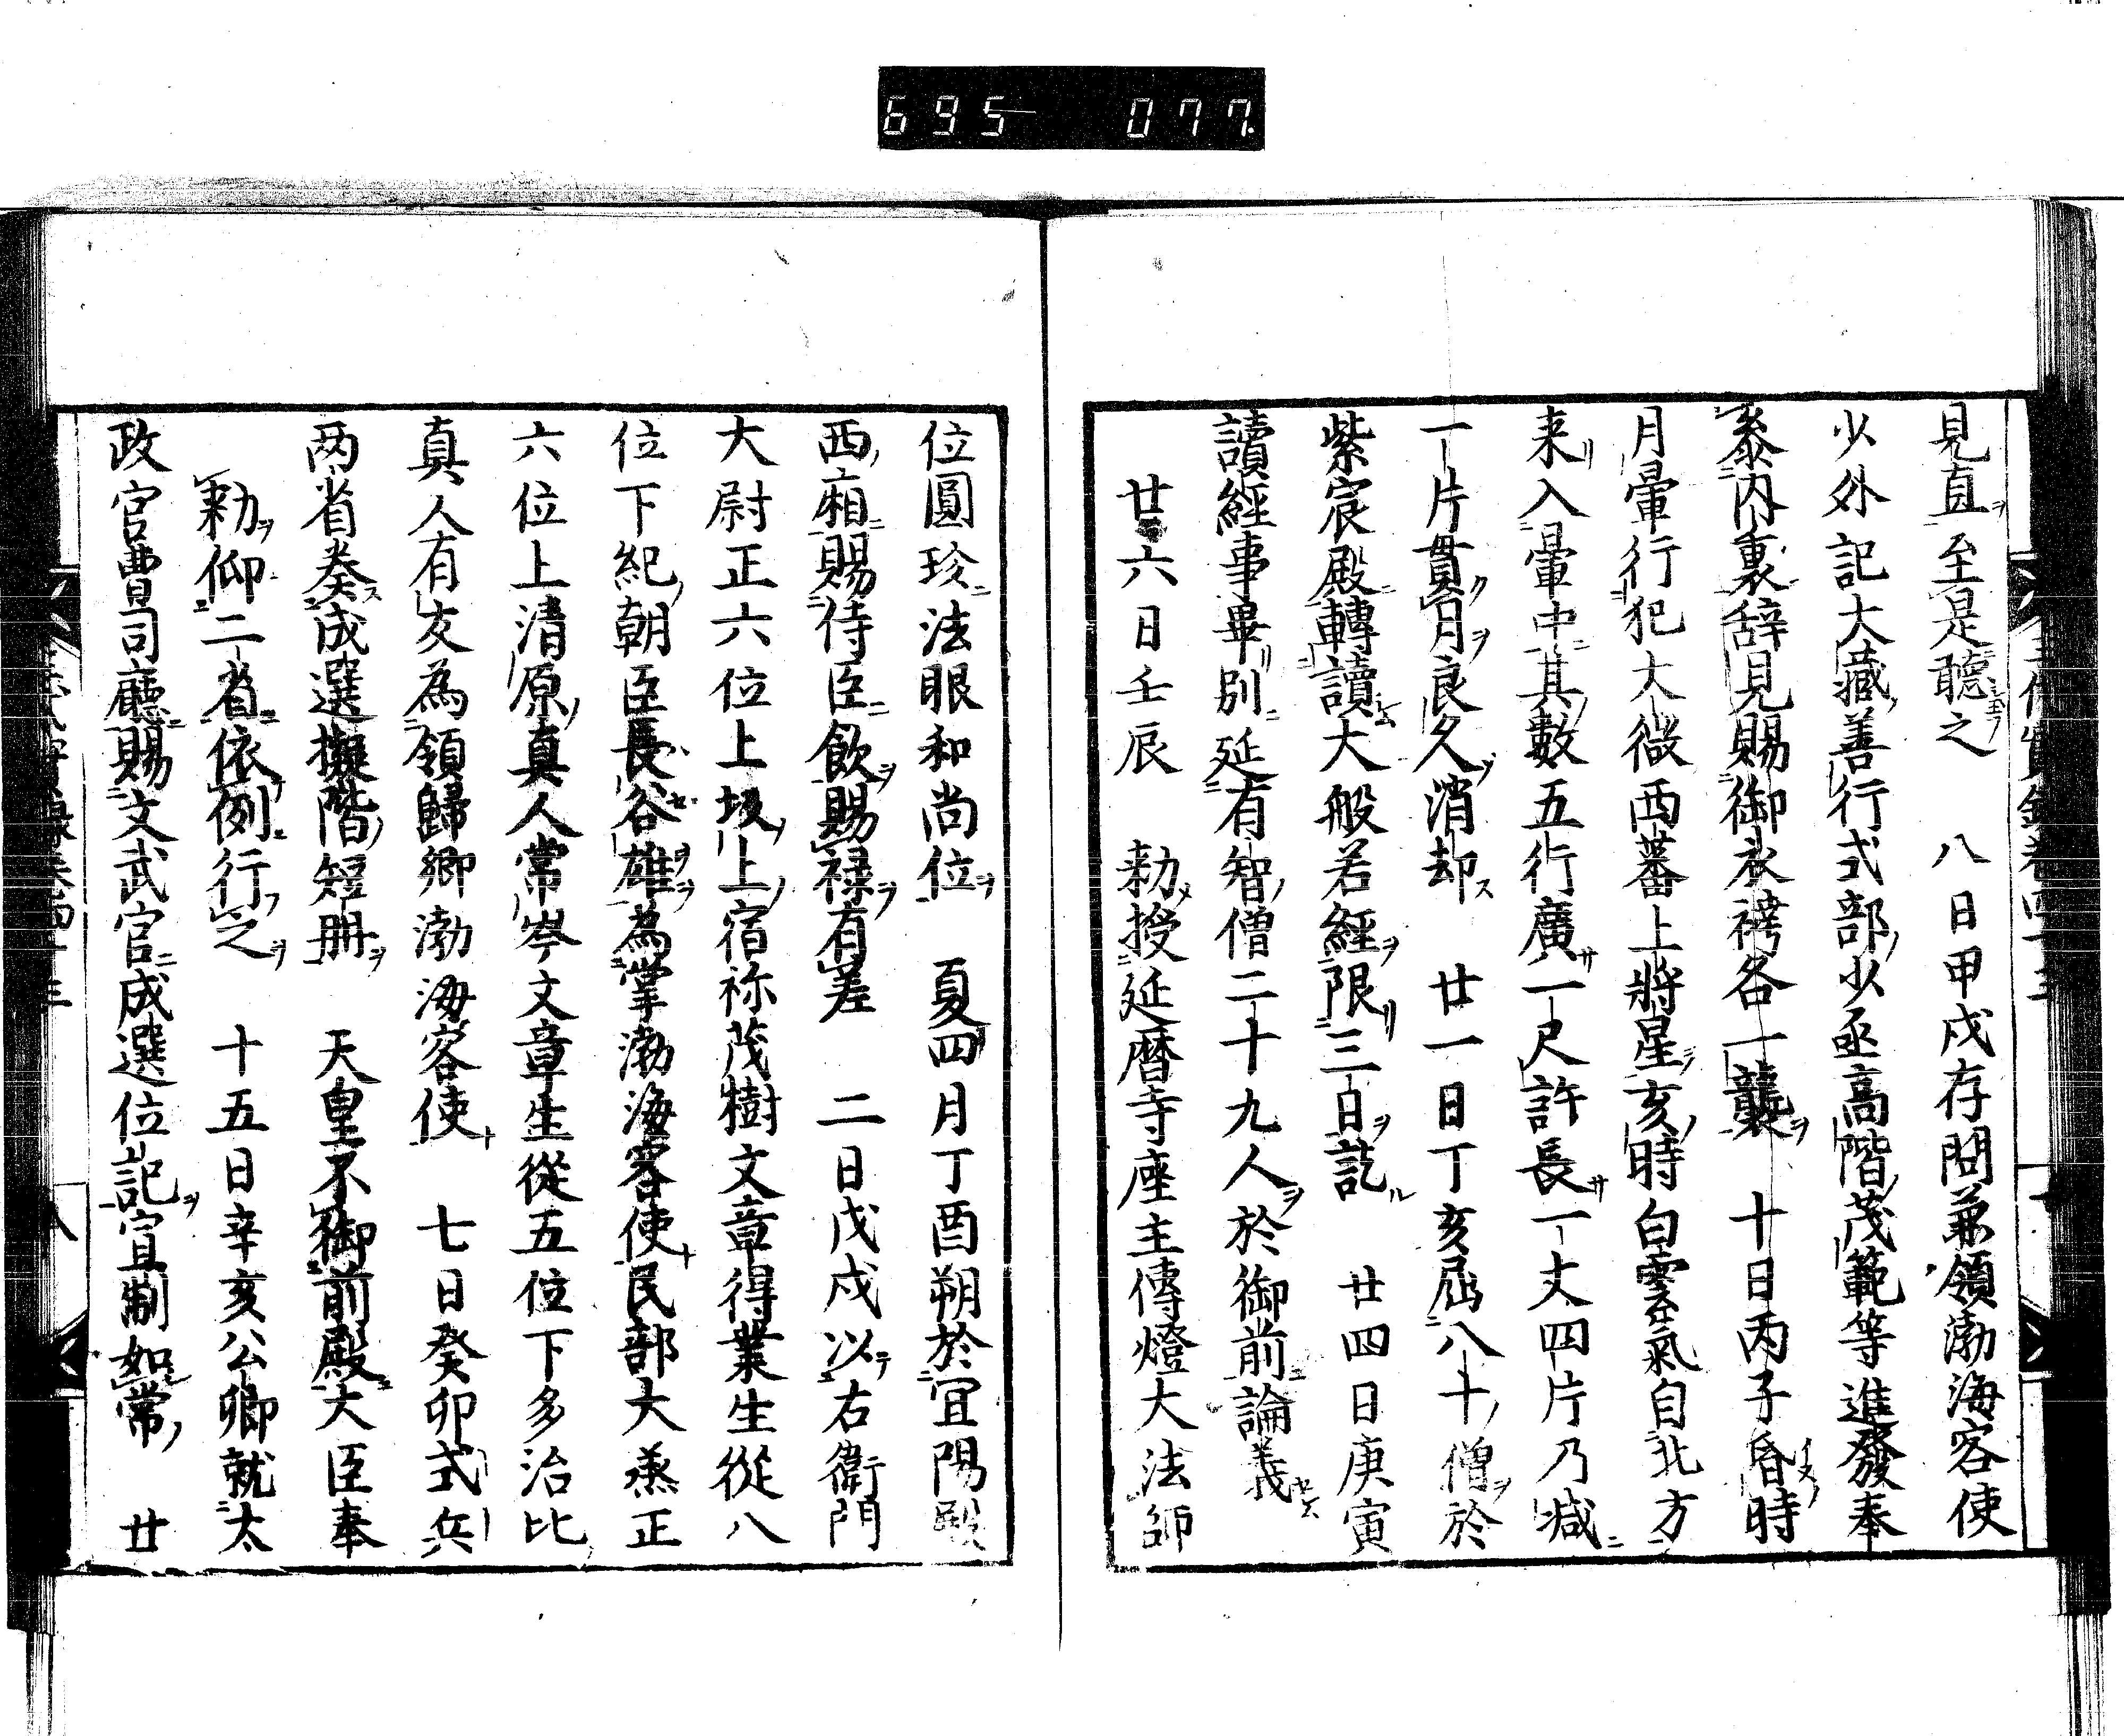 695 077.
見直至是聽之　八日甲戌存問兼領渤海客使
少外記大藏善行式部少丞高階茂範等進發奉
參內裏辭見賜御衣袴各一襲　十日丙子昏時
月暈行犯大微西蕃上將星亥時白雲氣自北方
来入暈中其數五行廣一尺許長一丈四片乃滅
一片貫月良久消却　廿一日丁亥屈八十僧於
紫宸殿轉讀大般若經限三日訖　廿四日庚寅
讀經事畢別延有智僧二十九人於御前論義
廿六日壬辰　勅授延曆寺座主傳燈大法師
位圓珍法眼和尚位　夏四月丁酉朔於宜陽殿
西廂賜侍臣飲賜禄有差　二日戊戌以右衛門
大尉正六位上坂上宿祢茂樹文章得業生從八
位下紀朝臣長谷雄為掌渤海客使民部大丞正
六位上清原真人常岑文章生從五位下多治比
真人有友為領歸鄉渤海客使　七日癸卯式兵
两省奏成選擬階短冊　天皇不御前殿大臣奉
勅仰二省依例行之　十五日辛亥公卿就太
政官曹司廳賜文武官成選位記宣制如常　廿